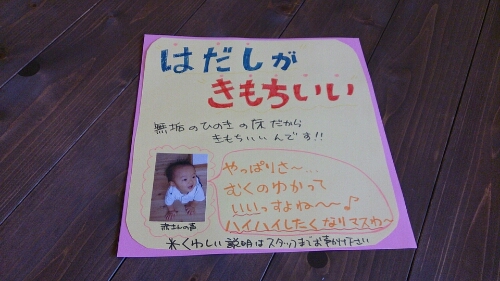 はだしが
きもちいい
無垢のひのきの床だから
きもちいいんです!!
やっぱりさ〜…
むくのゆかって
いいっすよね〜〜♪
ハイハイしたくなりマスわ〜
赤さんの声
※くわしい説明はスタッフまでお声がけ下さい